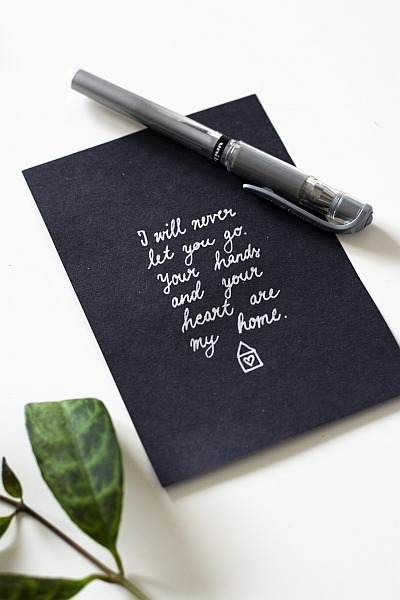 I will never
let you go.
Your hands
and your
heart are
my home.